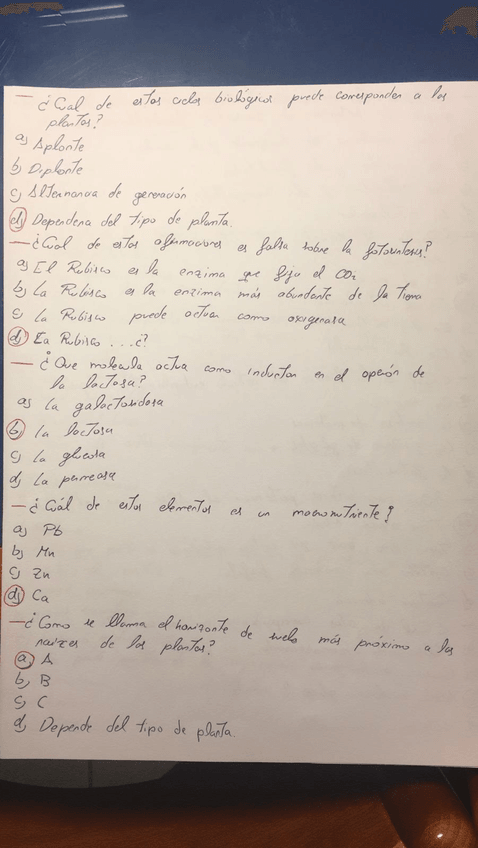 — ¿Cual de estos ciclos biológicos puede corresponder a las
plantas?
a) Aplonte
b) Diplonte
c) Alternancia de generación
d) Dependena del tipo de planta.
— ¿Cual de estas afirmaciones es falsa sobre la fotosintesis?
a) El Rubisco es la enzima que fija el CO2
b) La Rubisco es la enzima más abundante de la tierra
c) La Rubisco puede actuar como oxigenasa
d) La Rubisco ...¿?
— ¿Que molecula actua como inductor en el operón de
la lactosa?
a) La galactosidosa
b) La lactosa
c) La glucosa
d) La permeasa
— ¿Cuál de estos elementos es un macronutriente?
a) Pb
b) Mn
c) Zn
d) Ca
— ¿Como se llama el horizonte de suelo más próximo a las
raices de las plantas?
a) A
b) B
c) C
d) Depende del tipo de planta.